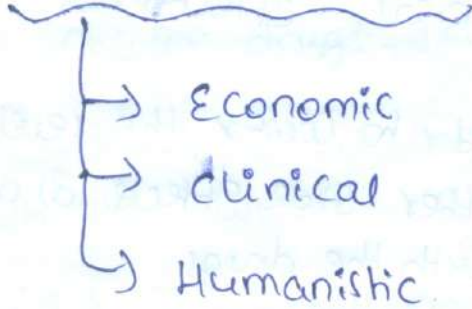 Economic
Clinical
Humanistic